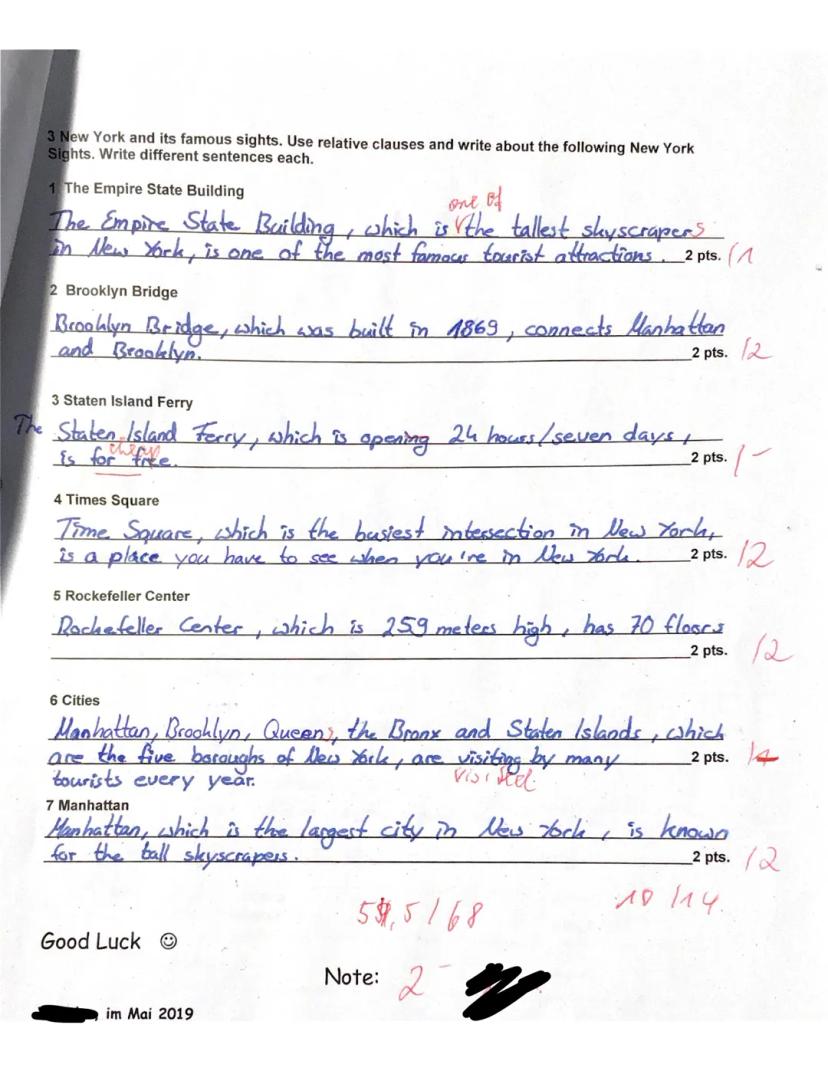 3 New York and its famous sights. Use relative clauses and write about the following New York
Sights. Write different sentences each.
1 The Empire State Building
one of
The Empire State Building, which is √the tallest skyscrapers
in New York, is one of the most famous tourist attractions. 2 pts. /1
2 Brooklyn Bridge
Brooklyn Bridge, which was built in 1869, connects Manhattan
and Brooklyn. 2 pts. /2
3 Staten Island Ferry
The Staten Island Ferry, which is opening 24 hours/seven days,
is for free. 2 pts. /-
4 Times Square
Time Square, which is the busiest intersection in New York,
is a place you have to see when you're in New York. 2 pts. /2
5 Rockefeller Center
Rockefeller Center, which is 259 meters high, has 70 floors
2 pts. /2
6 Cities
Manhattan, Brooklyn, Queens, the Bronx and Staten Islands, which
are the five boroughs of New York, are visiting by many 2 pts.
tourists every year. visited
7 Manhattan
Manhattan, which is the largest city in New York, is known
for the tall skyscrapers. 2 pts. /2
10/14
Good Luck ☺
Note: 2-
im Mai 2019